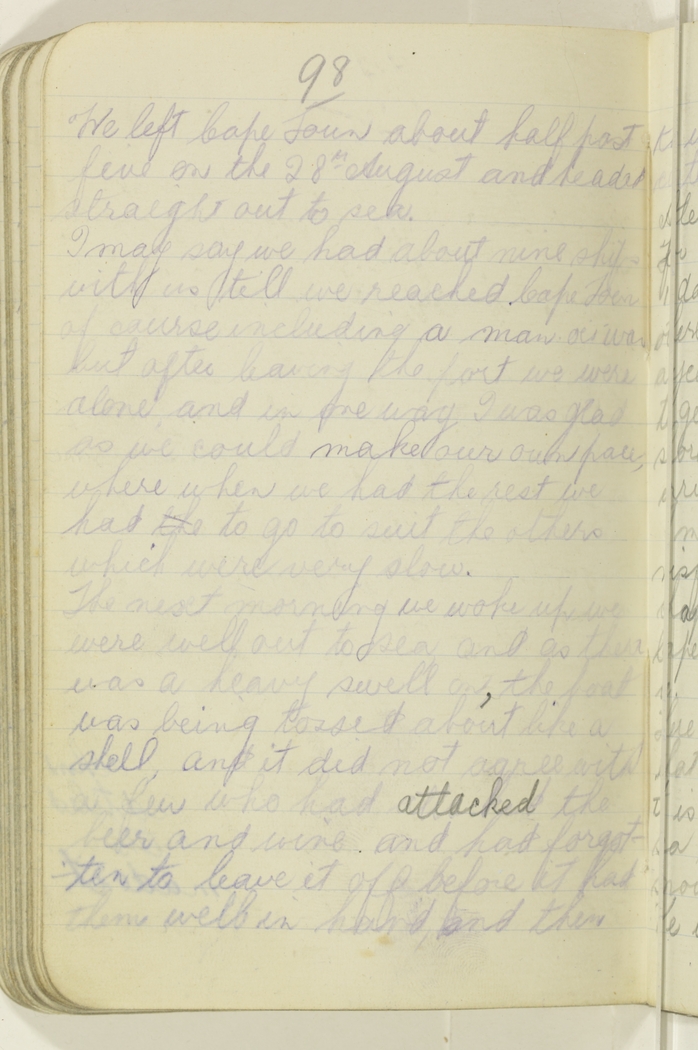 98
We left Cape Town about half past
five on the 28th August and headed
straight out to sea.
I may say we had about nine ships
with us till we reached Cape Town
of course including a man o war
but after leaving the port we were
alone, and in one way I was glad
as we could make our own pace,
where when we had the rest we
had the to go to suit the others
which were very slow.
The next morning we woke up we
were well out to sea and as there
was a heavy swell on, the boat
was being tossed about like a
shell, and it did not agree with
a few who had attacked the
beer and wine and had forgot-
ten to leave it off before it had
them well in hand, and then